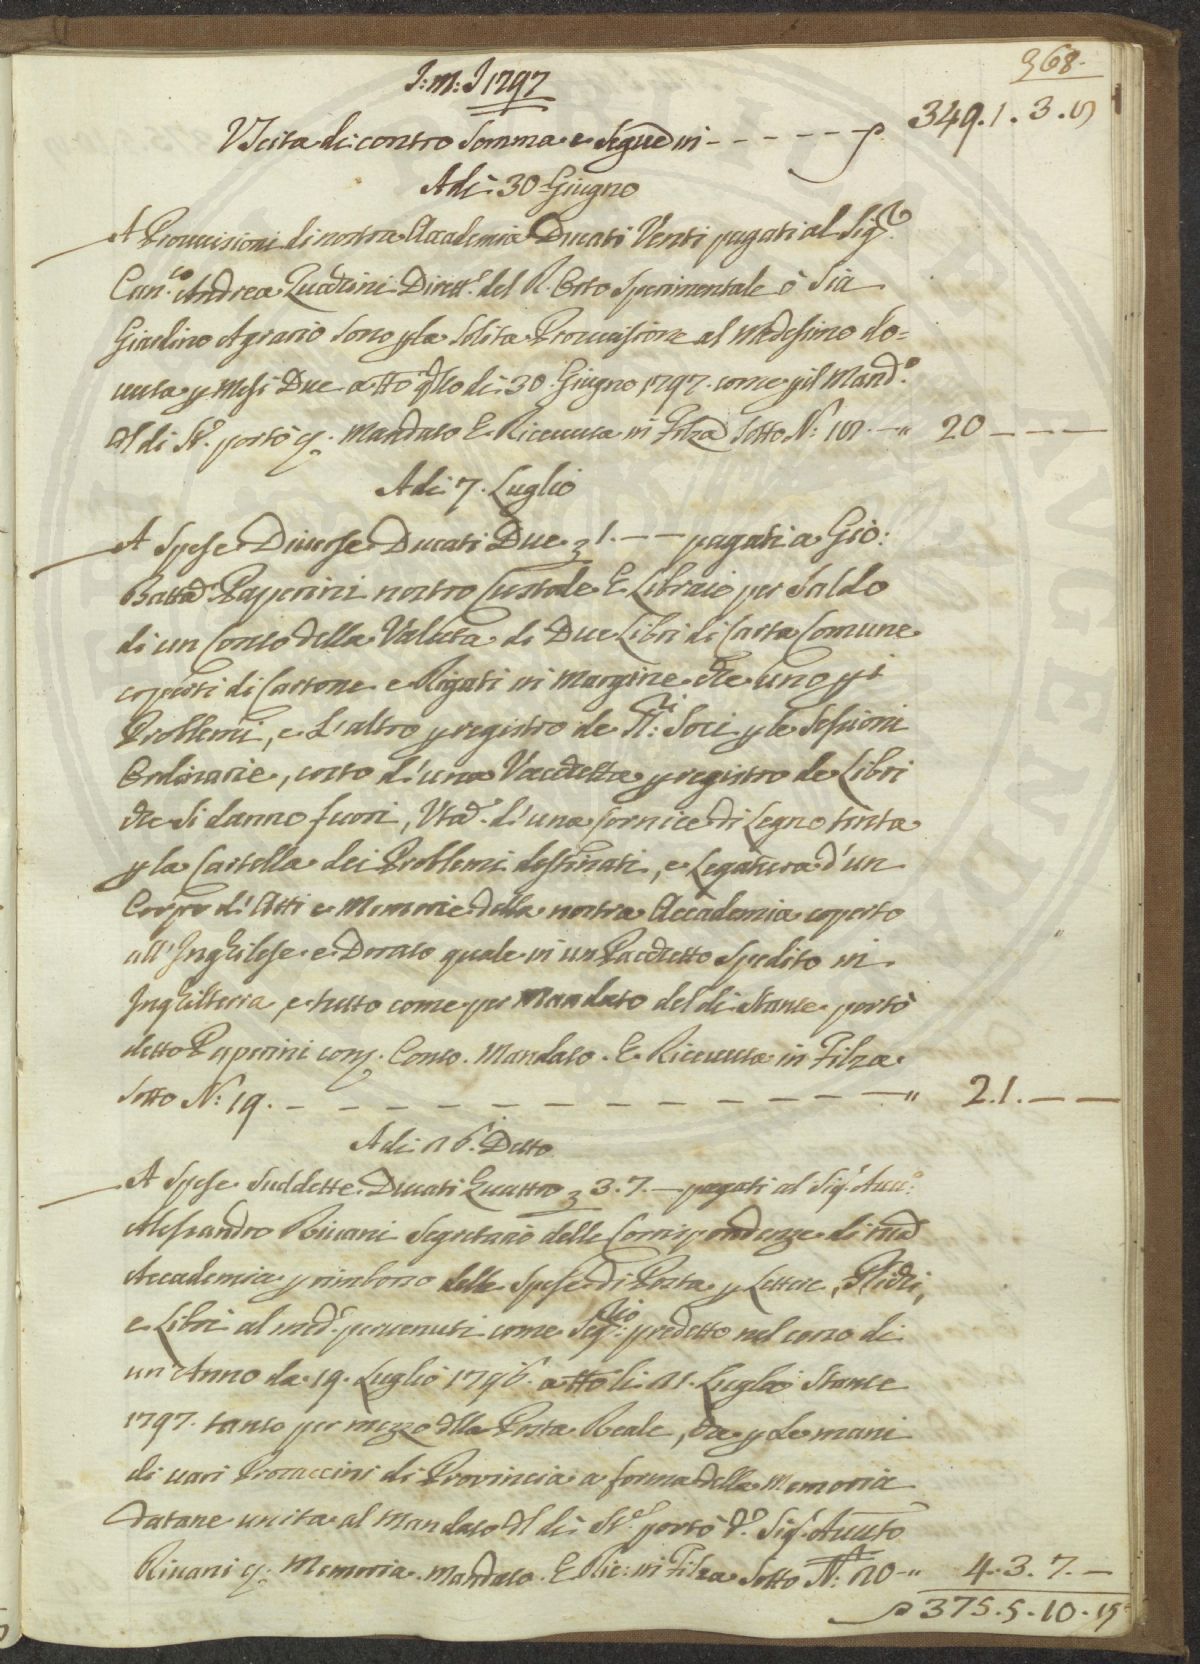 368.
J: M: J 1797
Uscita di contro Somma e Segue in - - - - - - 349.1.3.
Adi 30 Giugno
A Provvisioni di nostra Accademia Ducati Venti pagati al Sig.re
Can.co Andrea Zucchini Dirett.e del R. Orto Sperimentale ò Sia
Giardino Agrario Sono p la Solita Provvisione al Medesimo do=
vuta p Mesi Due a tt'o q.llo di 30 Giugno 1797. come p il Mand.o
del di St.e portò q. Mandato E Ricevuta in Filza Sotto N: - " 20 - - -
Adi 7. Luglio
A Spese Diverse Ducati Due 1. - - pagati a Gio:
Batta Paperini nostro Custode E Libraio per Saldo
di un Conto della Valuta di Due Libri di Carta Comune
coperti di Cartone e Rigati in Margine che uno p i
Problemi, e L'altro p registro de SS.ri: Soci p le Sessioni
Ordinarie, costo d'una Vacchetta p registro de Libri
che Si danno fuori, d'una Cornice di Legno tinta
p la Cartella dei Problemi destinati, e Legatura d'un
Corpo d'Atti e Memorie della nostra Accademia coperto
all'Inghilese e Dorato quale in un Pacchetto Spedito in
Inghilterra, e tutto come per Mandato del di Stante portò
detto Paperini Conto. Mandato. E Ricevuta in Filza
Sotto N: 19. - - - - - - - - - - - " 2.1. - -
Adi 16. Detto
A Spese Suddette Ducati Quattro 3.7. - pagati al Sig.r Avv.o:
Alessandro Rivani Segretario delle Corrispondenze di
Accademia p rimborso delle Spese di Posta p Lettere, Plichi,
e Libri al med.o pervenuti come Seg.rio: predetto nel corso di
un'Anno da 19. Luglio 1796. a tt'o li Luglio Stante
1797. tanto per mezzo della Posta Reale, che p Le mani
di vari Procaccini di Provincia a forma della Memoria
datane unita al Mandato del di St.e portò d.o Sig.r
Rivani q. Memoria. Mandato. E Ric: in Filza Sotto N: 20 - " 4.3.7. -
375.5.10.